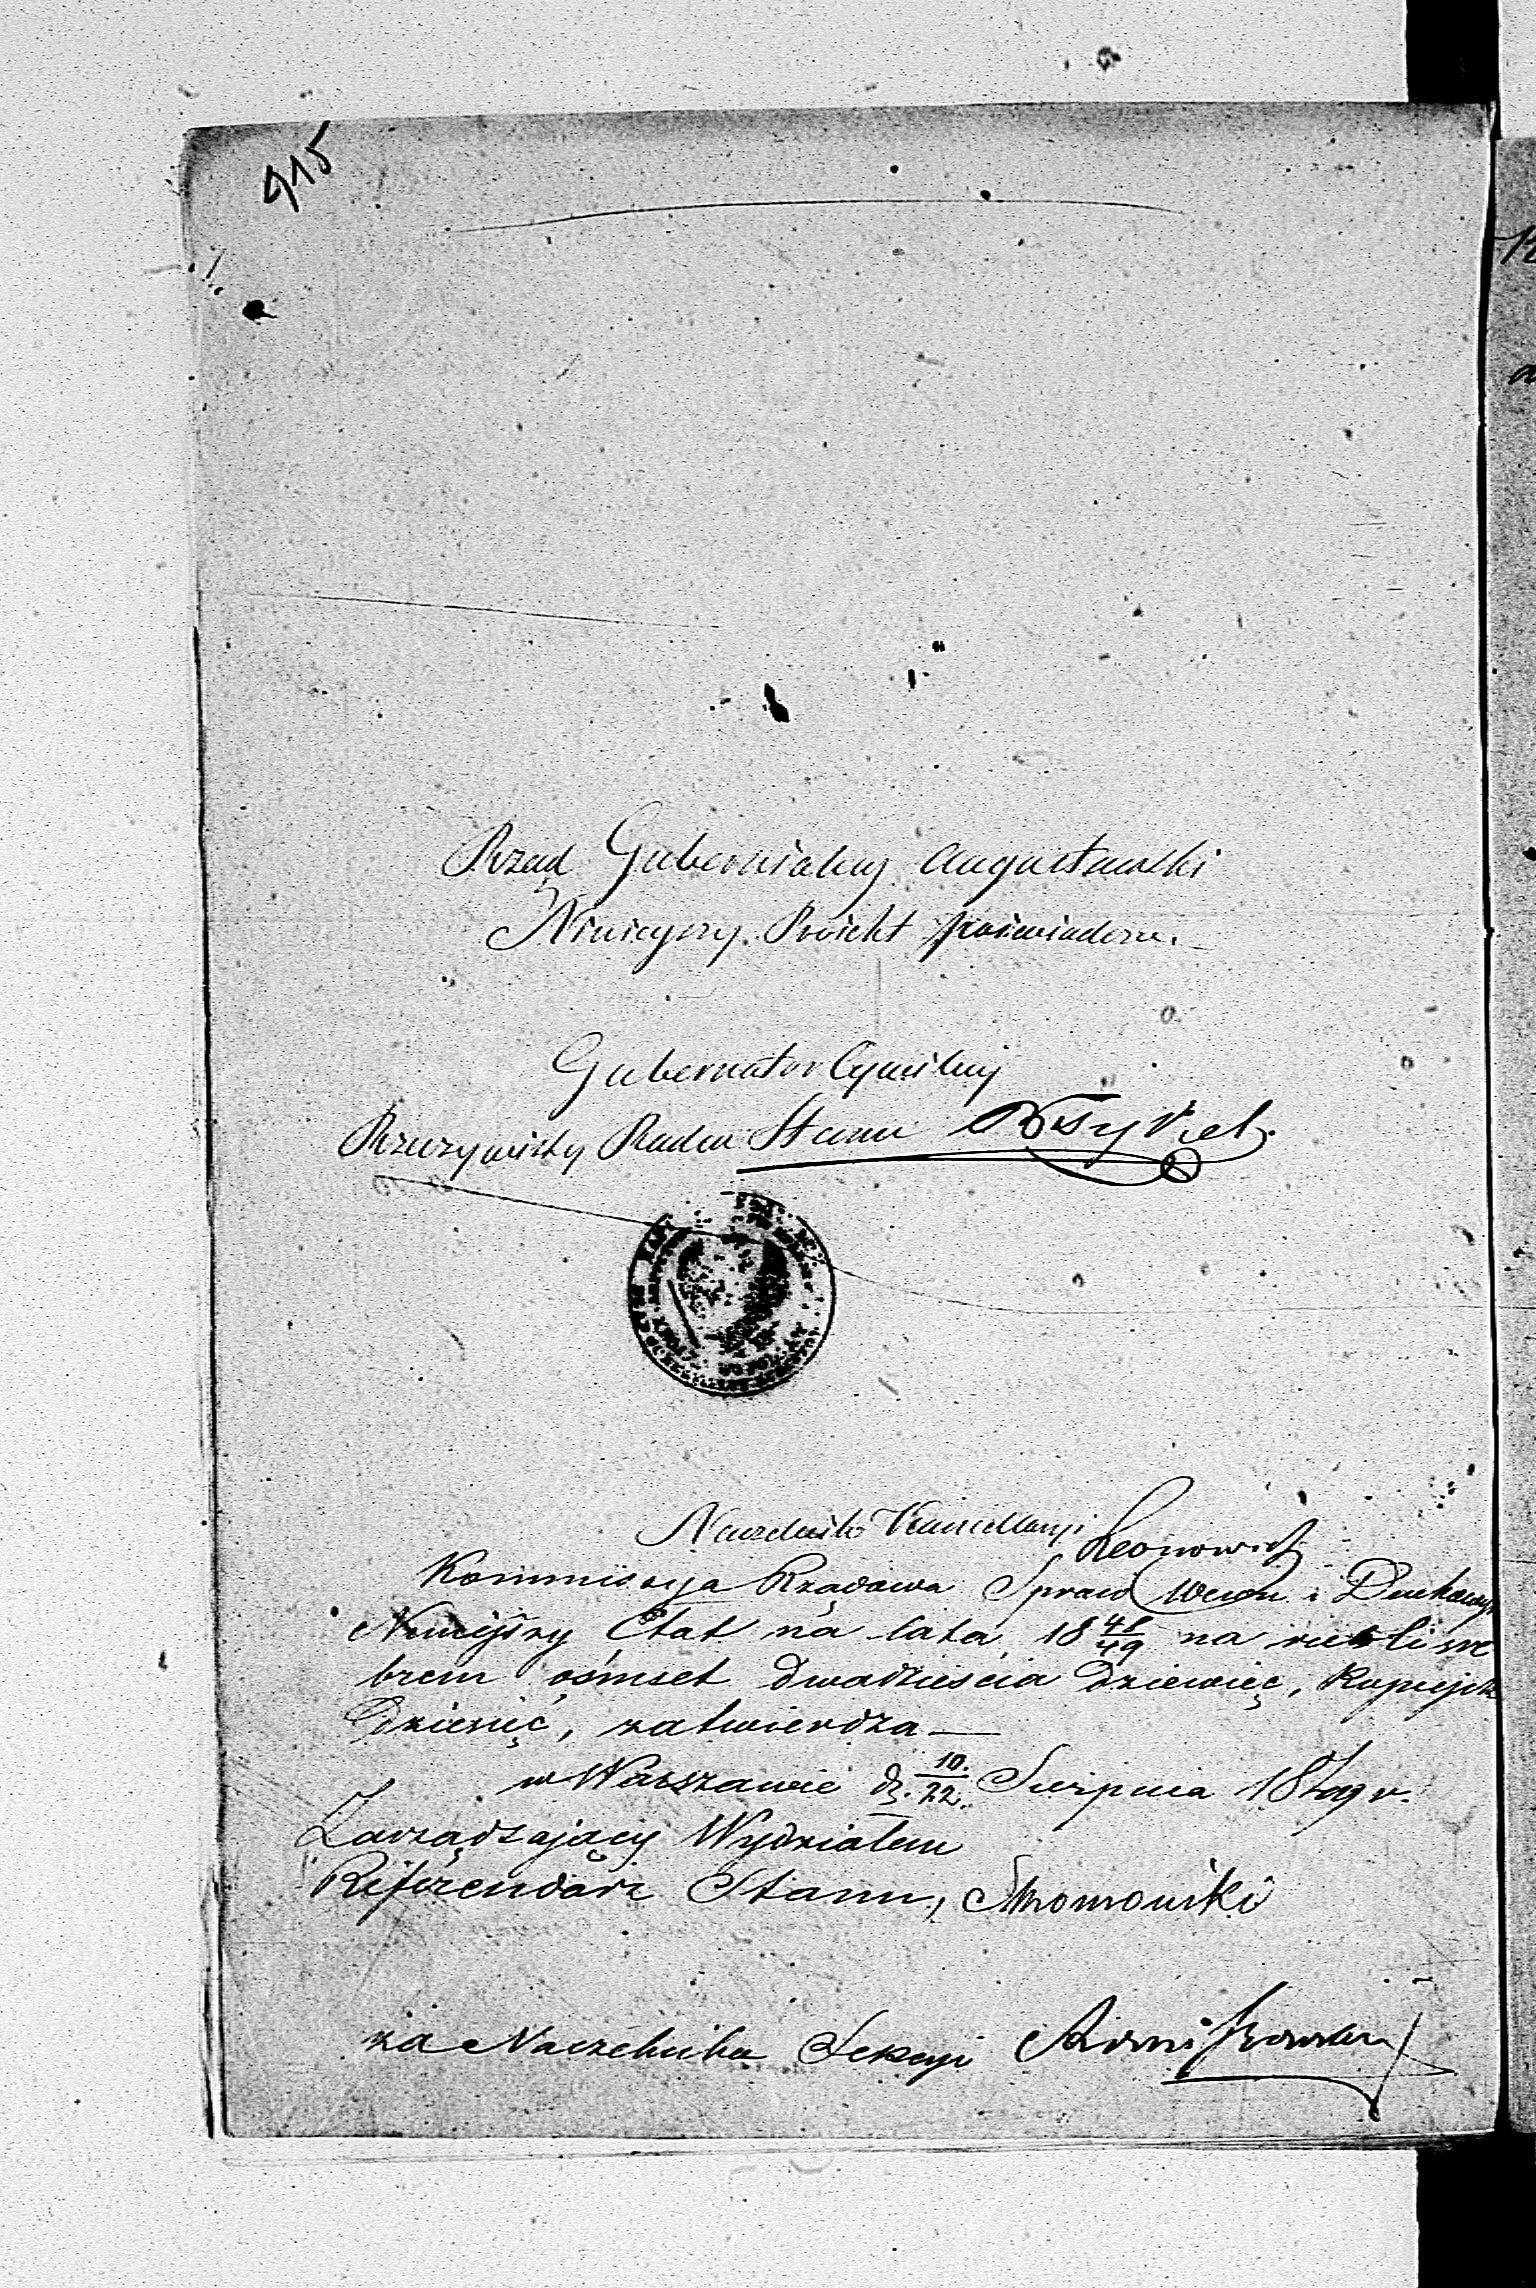 915
Rząd Gubernialny Augustowski
Niniejszy Proiekt poświadcza.
Gubernator Cywilny
Rzeczywisty Radca Stanu
Naczelnik Kancellaryi
Kommissyja Rządowa Spraw Wewn. i Duchowych
Niniejszy Etat na lata 18 48/49 na rubli sre
brem ośmset dwadzieścia dziewięć, kopiejek
dziesięć, zatwierdza —
w Warszawie d. 10./22. Sierpnia 1849 r.
Zarządzający Wydziałem
Referendarz Stanu,
za Naczelnika Sekcyi